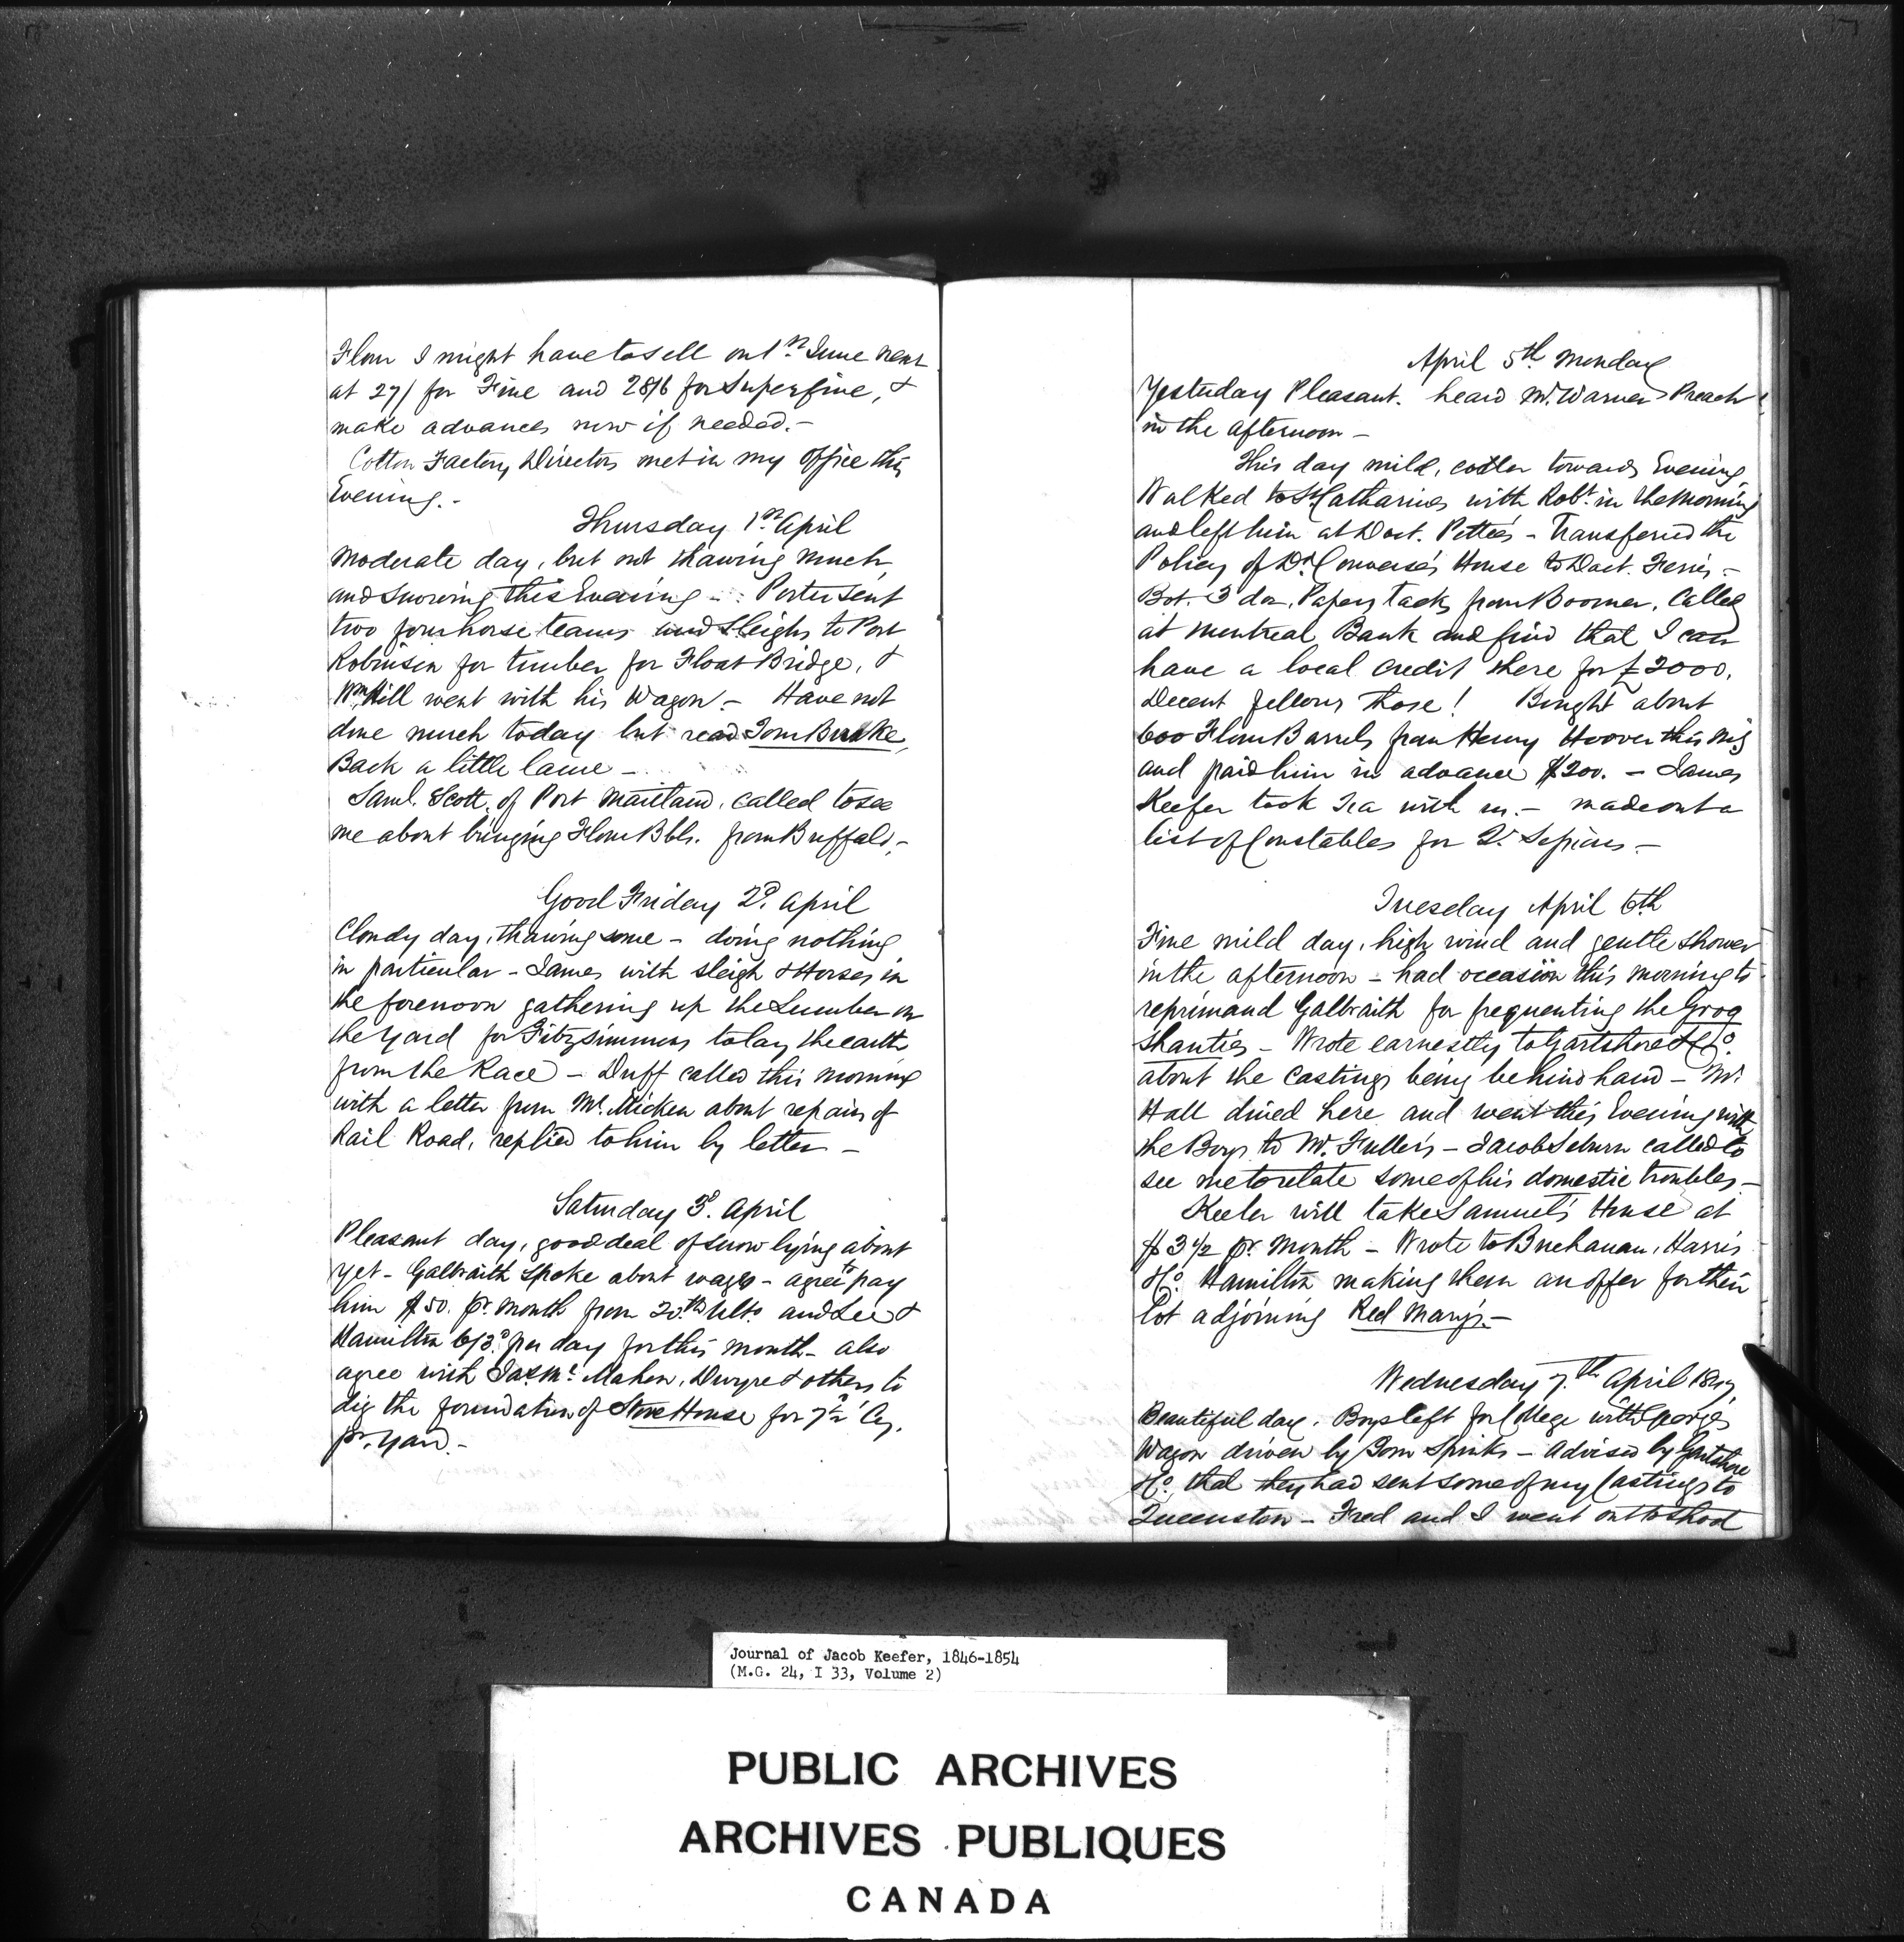 Flour I might have to sell on 1st June next
at 27/ for Fine and 28/6 for Superfine, &
make advances now if needed.-
Cotton Factory Directors met in my office this
Evening.-
Thursday 1st April
Moderate day, but not thawing much,
and snowing this Evening - Porter sent
two four horse teams and sleighs to Port
Robinson for timber for Float Bridge, &
Wm Hill went with his Wagon - Have not
done much today but read Tom Burke,
Back a little lame -
Saml. Scott, of Port Maitland, called to see
me about bringing Flour Bbls. from Buffalo,-
Good Friday 2d. April
Cloudy day, thawing some - doing nothing
in particular - James with sleigh & Horses in
the forenoon gathering up the Lumber in
the yard for Fitzsimmons to lay the earth
from the Race - Duff called this morning
with a letter from Mc.Micken about repairs of
Rail Road, replied to him by letter -
Saturday 3d. April
Pleasant day, good deal of snow lying about
yet - Galbraith spoke about wages - agree to pay
him $50. pr. month from 20.th Ulto. and Lee &
Hamilton 6/3d. per day for this month - also
agree with Jas. Mc.Mahon, Dwyre & others to
dig the foundation of Store House for 7 1/2 Cy.
pr. yard.-
April 5th. Monday
Yesterday Pleasant. heard Mr. Warner Preach
in the afternoon -
This day mild, cooler towards Evening,
Walked to St Catharines with Robt. in the Morning
and left him at Doct. Petties - Transferred the
Policy of Dr. Converse's House to Doct. Ferris.-
Bot. 3 doz. Papers Tacks from Boomer. Called
at Montreal Bank and find that I can
have a local credit there for £2000.
Decent fellows those! Bought about
600 Flour Barrels from Henry Hoover this mg
and paid him in advance $200. - James
Keefer took Tea with us.- made out a
list of Constables for Qr. Sessions -
Tuesday April 6th
Fine mild day, high wind and gentle shower
in the afternoon - had occasion this morning to
reprimand Galbraith for frequenting the Grog
Shanties - Wrote earnestly to Gartshore & Co.
about the Castings being behind hand - Mr.
Hall dined here and went this Evening with
the Boys to Mr. Fuller's - Jacob Seburn called to
see me to relate some of his domestic troubles -
Keeler will take Samuel's House at
$3 1/2 pr. Month - Wrote to Buchanan, Harris
& Co. Hamilton making them an offer for their
lot adjoining Red Mary's.-
Wednesday 7.th April 1847,
Beautiful day. Boys left for College with George's
Wagon driven by Tom Spinks - Advised by Gartshore
& Co. that they had sent some of my Castings to
Queenston - Fred and I went out to shoot
Journal of Jacob Keefer, 1846-1854
(M.G. 24, I 33, Volume 2)
PUBLIC ARCHIVES
ARCHIVES PUBLIQUES
CANADA